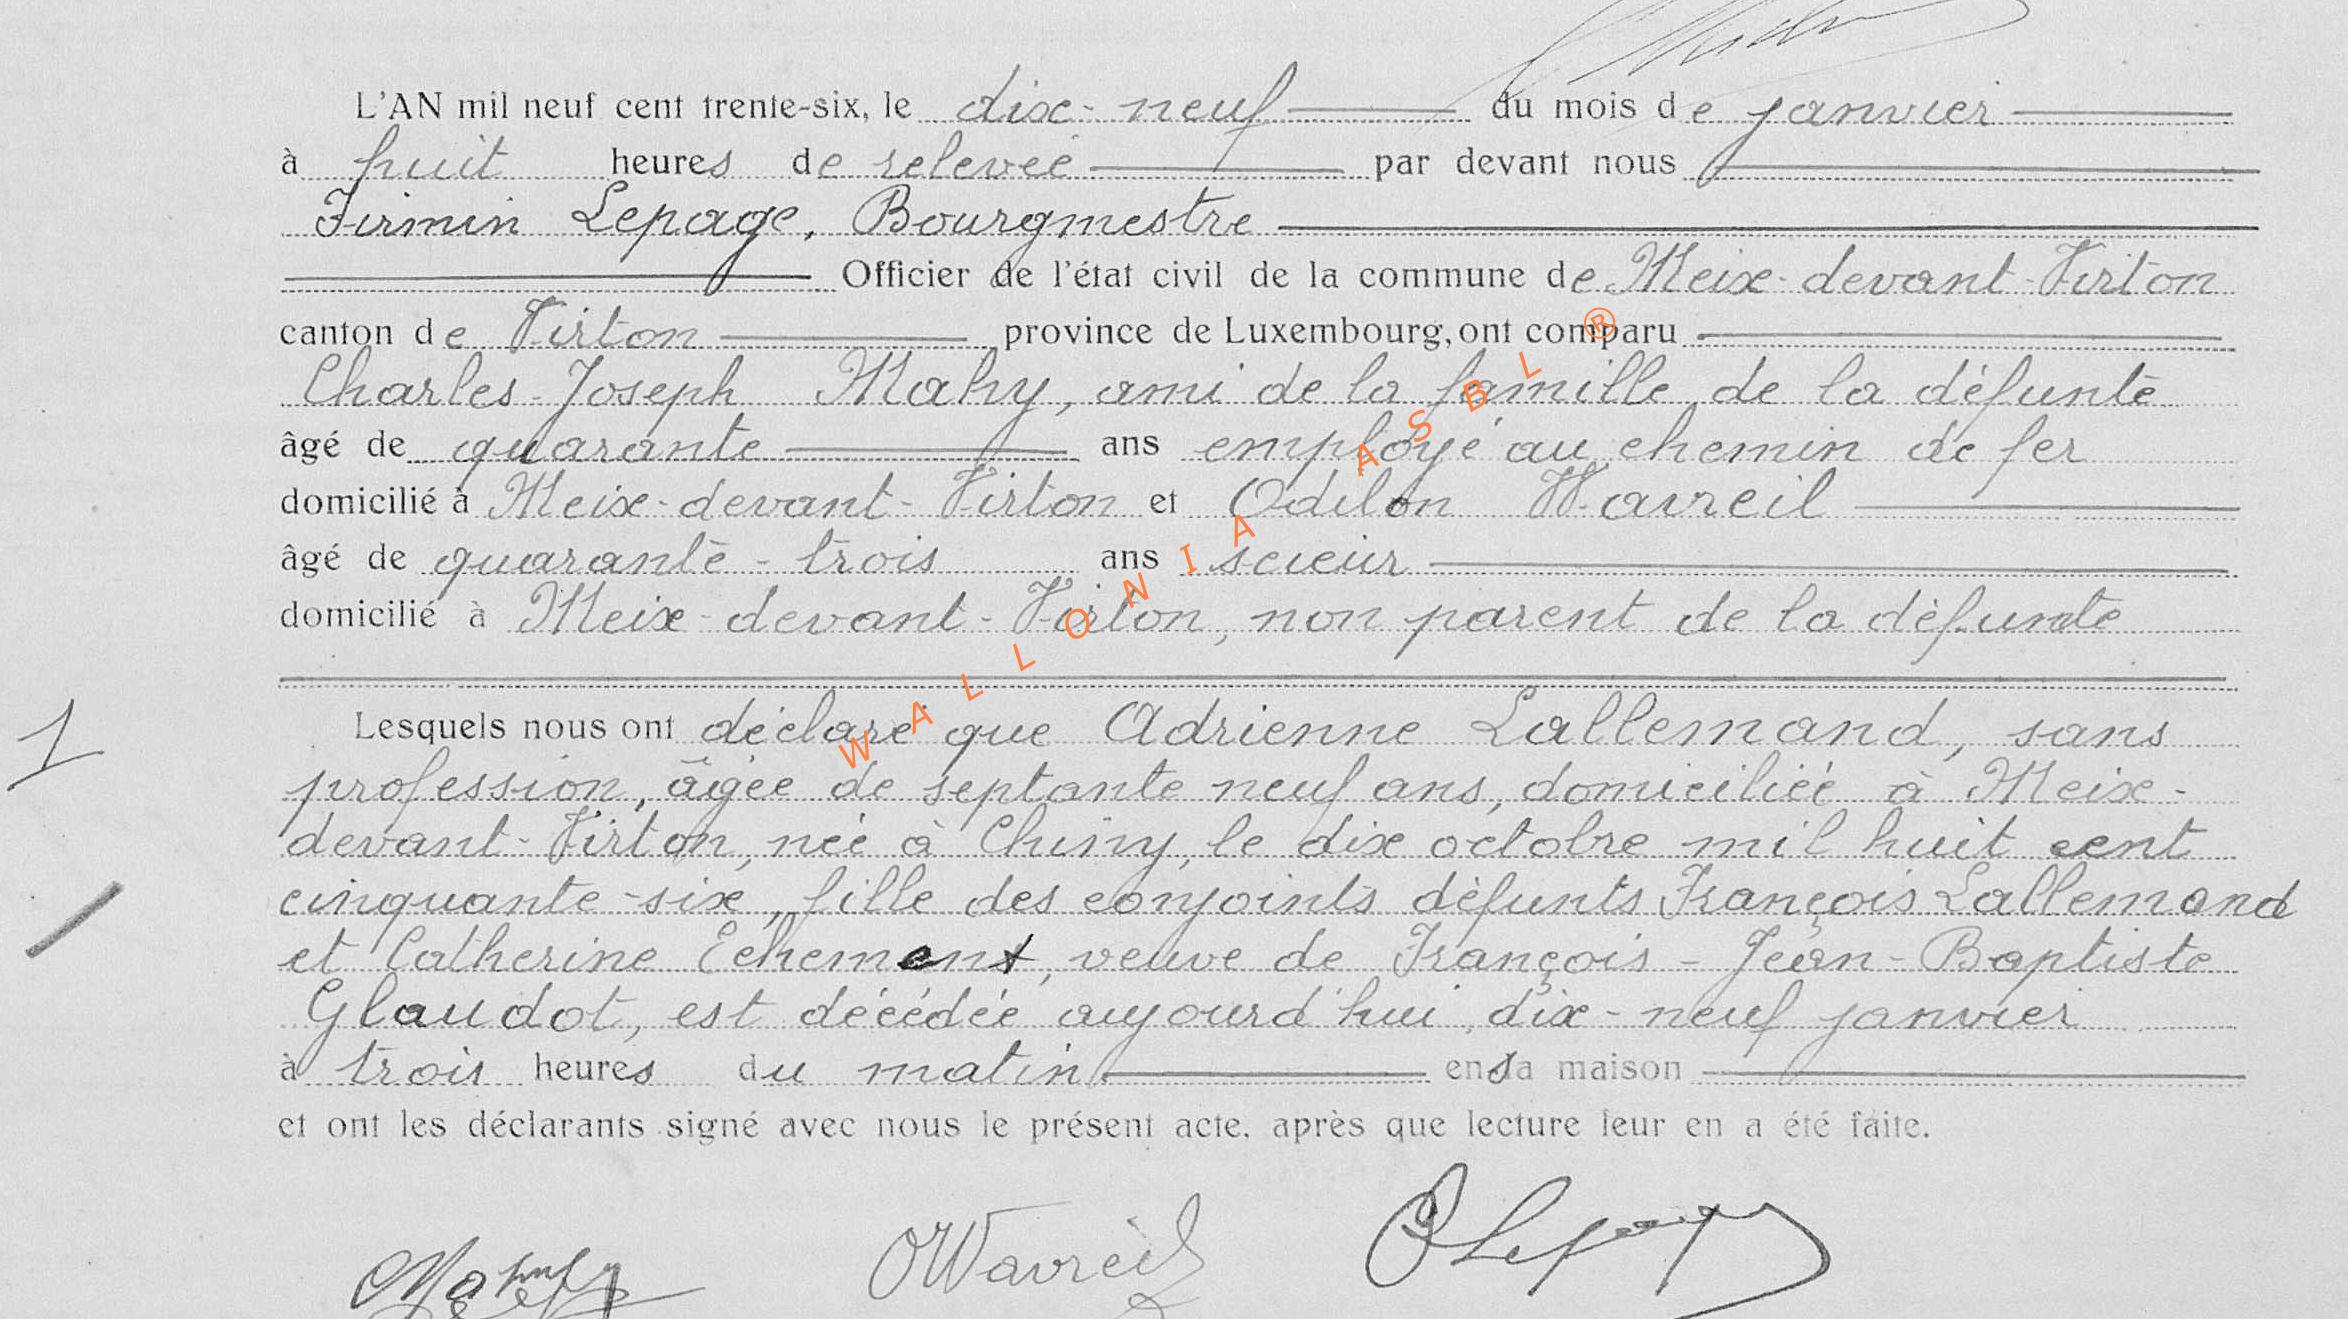 L'AN mil neuf cent trente-six, le dix-neuf du mois de janvier
à huit heures de relevée par devant nous
Firmin Lepage, Bourgmestre
Officier de l'état civil de la commune de Meix-devant-Virton
canton de Virton province de Luxembourg, ont comparu
Charles-Joseph Mahy, ami de la famille de la défunte
âgé de quarante ans employé au chemin de fer
domicilié à Meix-devant-Virton et Odilon Wavreil
âgé de quarante-trois ans scieur
domicilié à Meix-devant-Virton, non parent de la défunte
1
Lesquels nous ont déclaré que Adrienne Lallemand, sans
profession, âgée de septante neuf ans, domiciliée à Meix-
devant-Virton, née à Chiny, le dix octobre mil huit cent
cinquante-six, fille des conjoints défunts François Lallemand
et Catherine Echement, veuve de François-Jean-Baptiste
Glaudot, est décédée aujourd'hui, dix-neuf janvier
à trois heures du matin en sa maison
et ont les déclarants signé avec nous le présent acte, après que lecture leur en a été faite.
Mahy OWavreil Lepage
WALLONIA ASBL ®